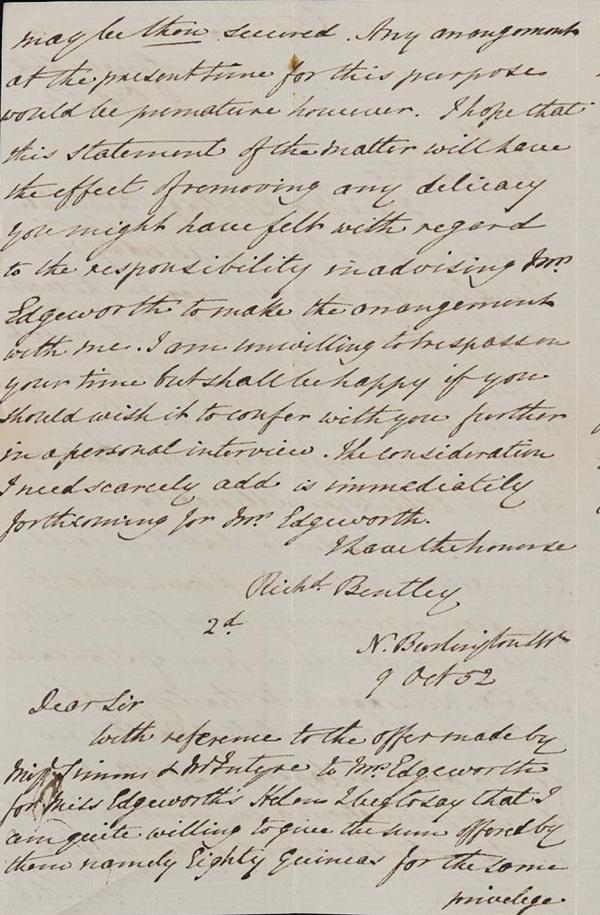 may be then secured. Any arrangement
at the present time for this purpose
would be premature however. I hope that
this statement of the matter will have
the effect of removing any delicacy
you might have felt with regard
to the responsibility in advising Mrs.
Edgeworth to make the arrangement
with me. I am unwilling to trespass on
your time but shall be happy if you
should wish it to confer with you further
in a personal interview. The consideration
I need scarcely add is immediately
forthcoming for Mrs. Edgeworth.
I have the honor &c
Richd. Bentley
2d.
N. Burlington St
9 Oct 52
Dear Sir
With reference to the offer made by
Simms & McIntyre to Mrs. Edgeworth
for Miss Edgeworth's Helen I beg to say that I
am quite willing to give the sum offered by
them namely Eighty Guineas for the same
privilege